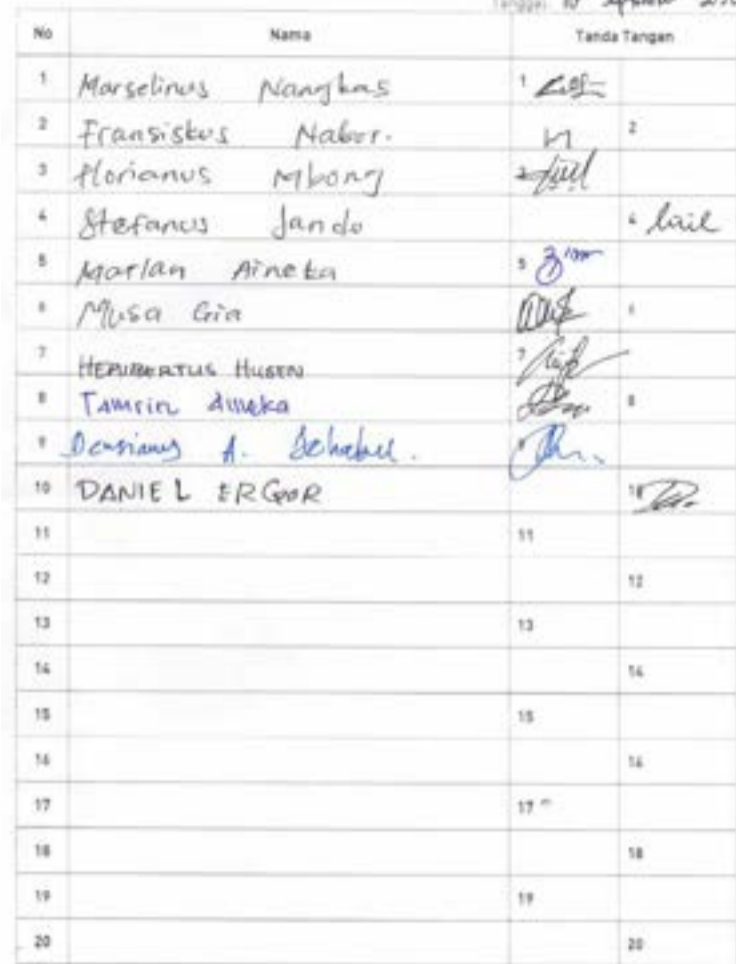 Tanggal: 10
No Nama Tanda Tangan
1 Marselinus Nangkas 1
2 Fransiskus Nabor. 2
3 Florianus Mbong 3
4 Stefanus Jando 4
5 Marlan Aineka 5
6 Musa Gia 6
7 HERIBERTUS HUSEN 7
8 Tamsin Aineka 8
9 A. 9
10 DANIEL ERGOR 10
11 11
12 12
13 13
14 14
15 15
16 16
17 17
18 18
19 19
20 20